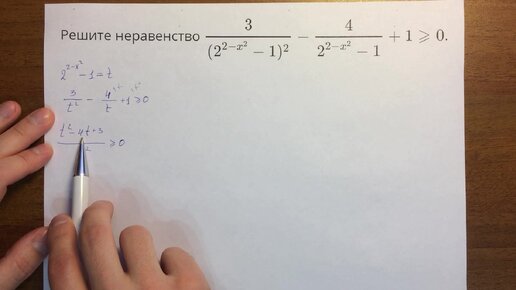 Решите неравенство 3/(2^{2−x²} − 1)² − 4/(2^{2−x²} − 1) + 1 ⩾ 0.
2^{2-x²} - 1 = t
3/t² - 4/t + 1 ≥ 0
t² - 4t + 3 / ² ≥ 0